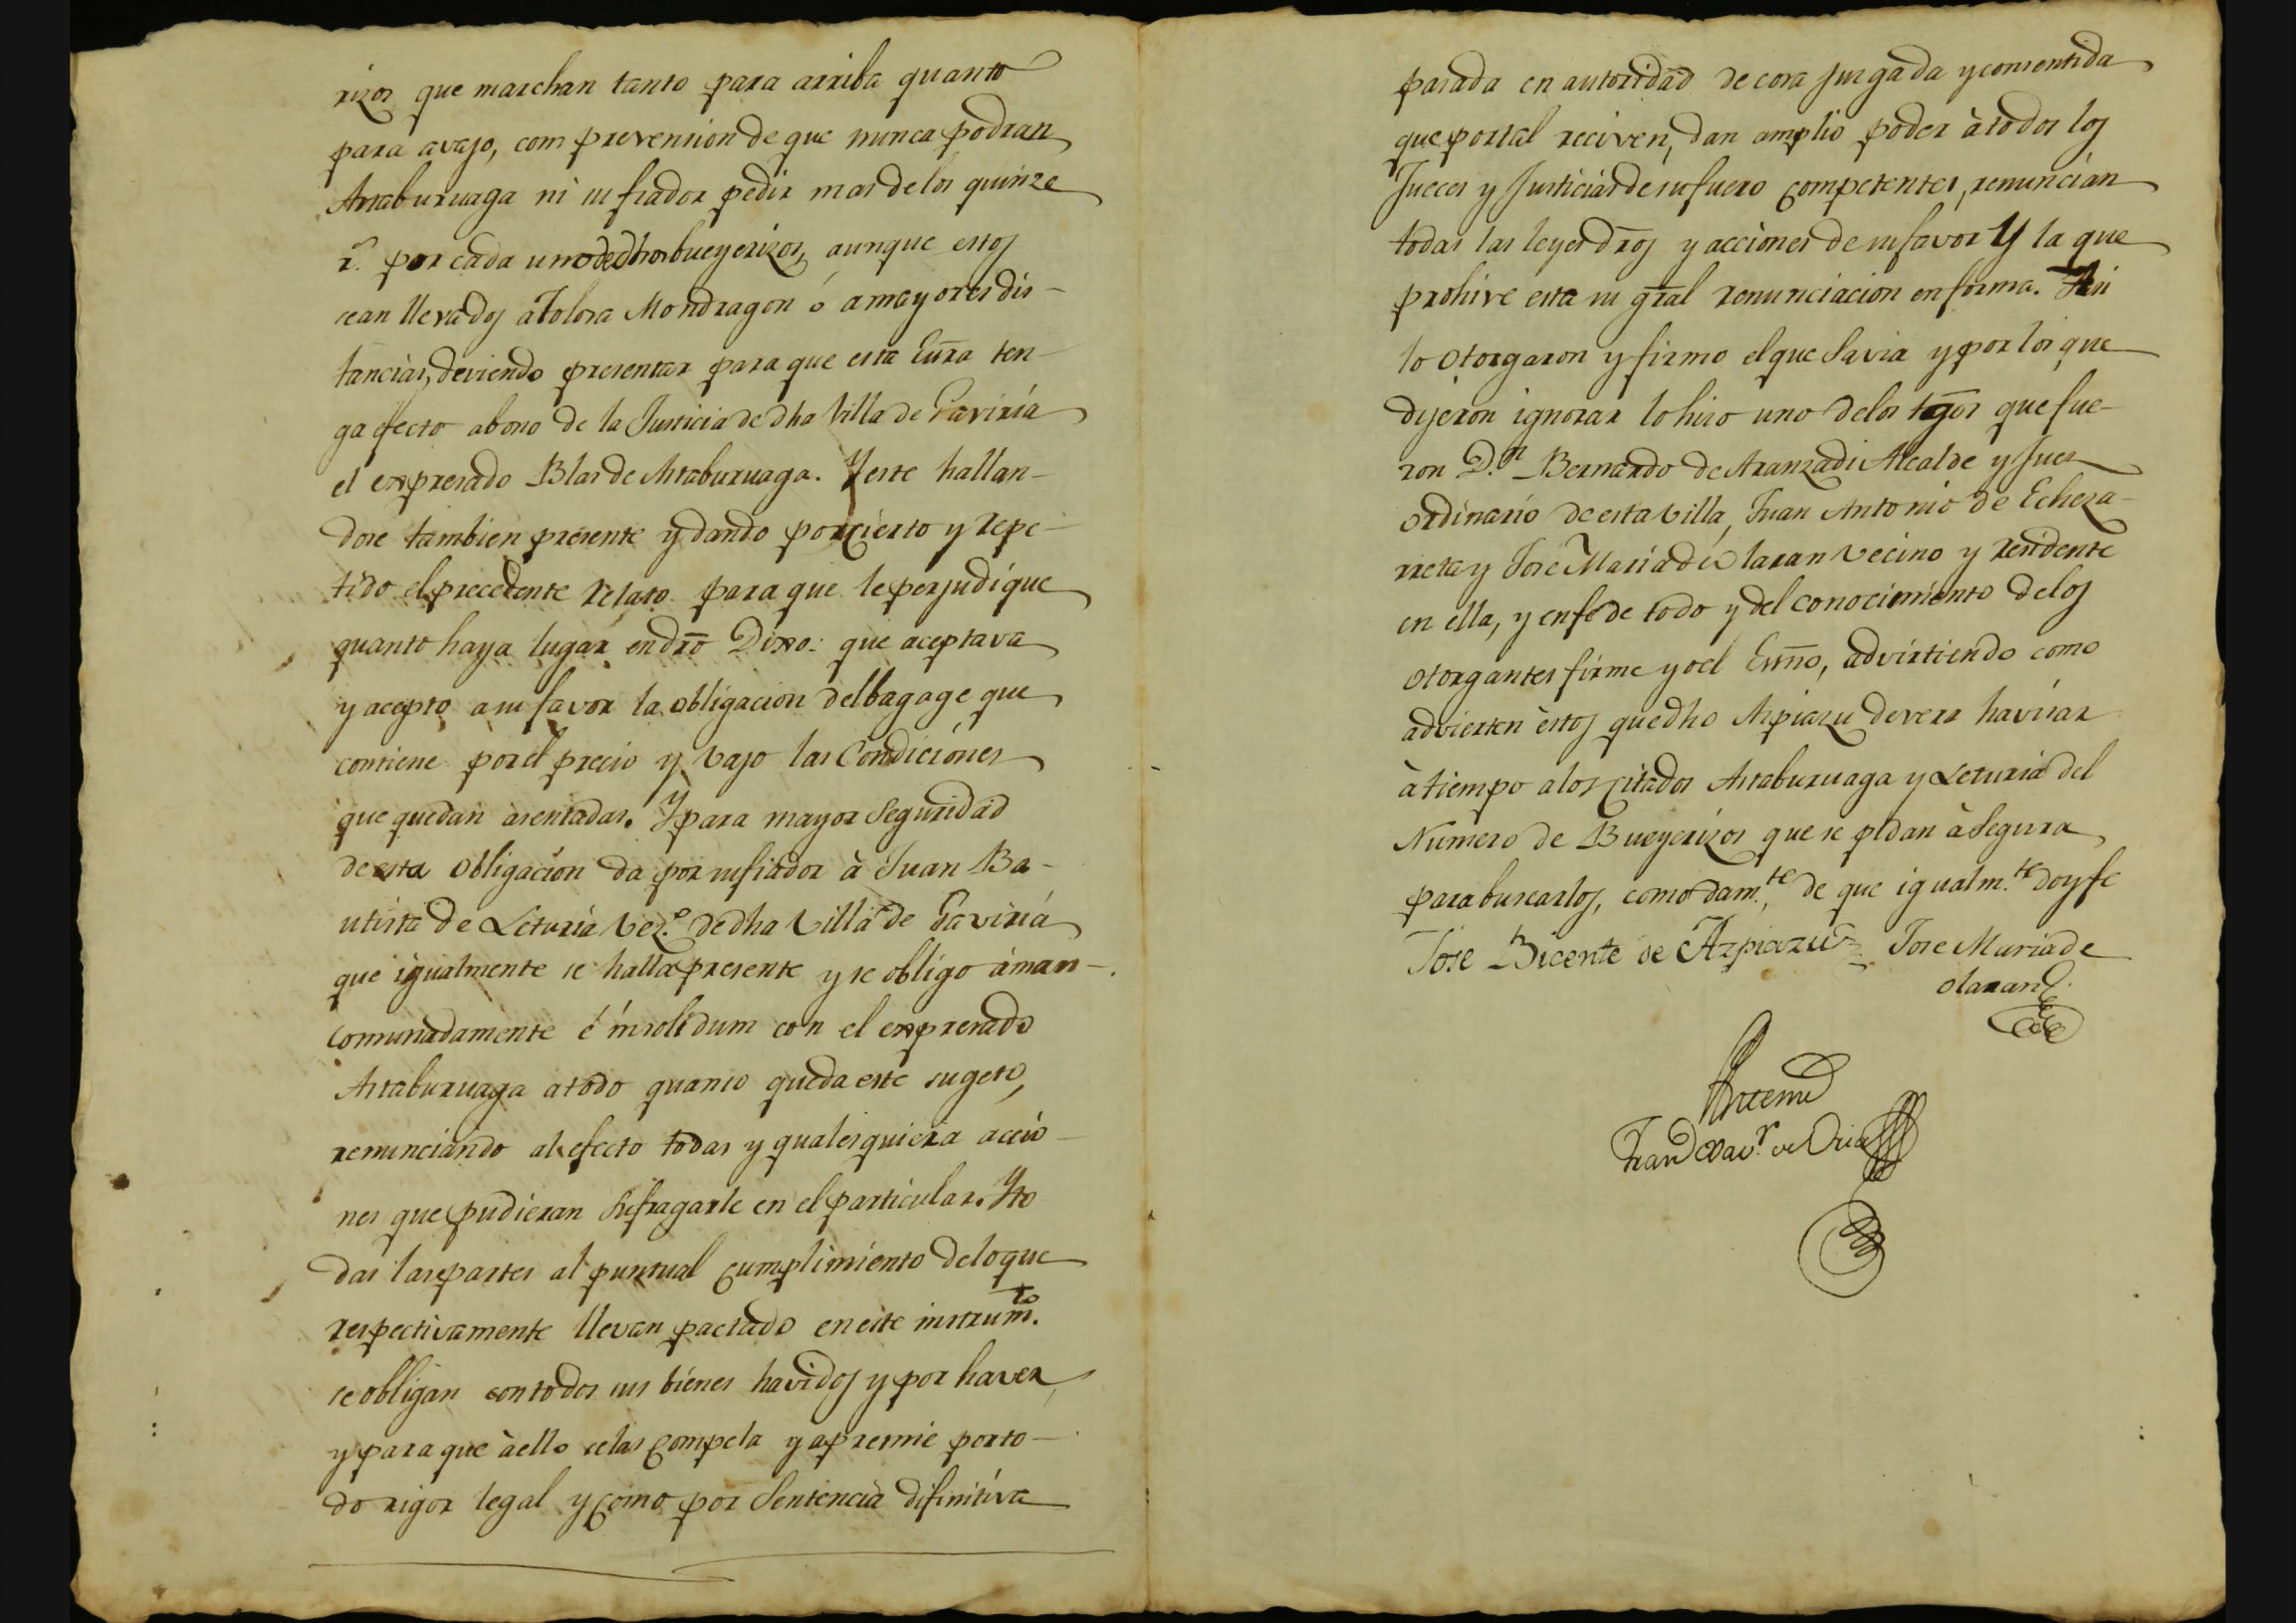 rizos que marchan tanto para arriba quanto
para avajo, com prevension de que nunca podran
Astaburuaga ni su fiador pedir mas de los quinze
r.^s por cada uno de dhos bueyerizos, aunque estos
sean llevados à Tolosa Mondragon ó a mayores dis-
tancias, deviendo presentar para que esta Esrra ten-
ga efecto abono de la Justicia de dha Villa de Gaviria
el expresado Blas de Astaburuaga. Y este hallan-
dose tambien presente y dando por cierto y repe-
tido el precedente relato para que le perjudique
quanto haya lugar en dro Dixo: que aceptava
y acepto a su favor la obligacion del bagage que
contiene por el precio y vajo las Condiciones
que quedan asentadas. Y para mayor Seguridad
de esta obligacion da por su fiador à Juan Ba-
utista de Leturia Vez.^o de dha Villa de Gaviria
que igualmente se halla presente y se obligo àman-
comunadamente é insolidum con el expresado
Astaburuaga a todo quanto queda este sugeto,
renunciando al efecto todas y qualesquiera accio-
nes que pudieran Sufragarle en el particular. Y to
das las partes al puntual cumplimiento de lo que
respectivamente llevan pactado en este instrum.^to
se obligan con todos sus bienes havidos y por haver,
y para que à ello se las compela y apremie por to-
do rigor legal y como por Sentencia difinitiva
pasada en autoridad de cosa Juzgada y consentida
que por tal reciven, dan amplio poder à todos los
Jueces y Justicias de su fuero competentes, renuncian
todas las leyes dros y acciones de su favor Y la que
prohive esta su gral renunciacion en forma. Asi
lo otorgaron y firmo el que Savia y por los que
dijeron ignorar lo hiso uno de los tgos que fue-
ron D.^n Bernardo de Aranzadi Alcalde y Juez
ordinario de esta villa, Juan Antonio de Echeza-
rreta y Jose Maria de Olaran vecino y residente
en ella, y en fe de todo y del conocimiento de los
otorgantes firme yo el Essno, advirtiendo como
advierten èstos que dho Azpiazu devera havisar
à tiempo a los citados Astaburuaga y Leturia del
Numero de Bueyerizos que se pidan à Segura
para buscarlos, comodam.^te, de que igualm.^te doy fe
Jose Bicente de Azpiazu Jose Maria de
olaran
Antemi
Fran^co Xav.^r de Oria